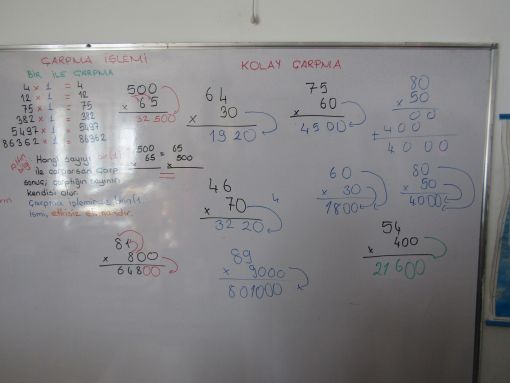 ÇARPMA İŞLEMİ
BİR İLE ÇARPMA
4 x 1 = 4
12 x 1 = 12
75 x 1 = 75
382 x 1 = 382
5497 x 1 = 5497
86362 x 1 = 86362
Hangi sayıyı bir
ile çarparsan çarp
sonuç; çarptığın sayının
kendisi olur.
Çarpma işleminin
etkisiz elemanıdır.
500
x 65
32 500
500 = 65
x 65 x 500
81
x 800
64800
KOLAY ÇARPMA
64
x 30
1920
75
x 60
4500
80
x 50
00
+ 400
4000
46
x 70
3220
4
60
x 30
1800
80
x 50
4000
89
x 9000
801000
54
x 400
21600